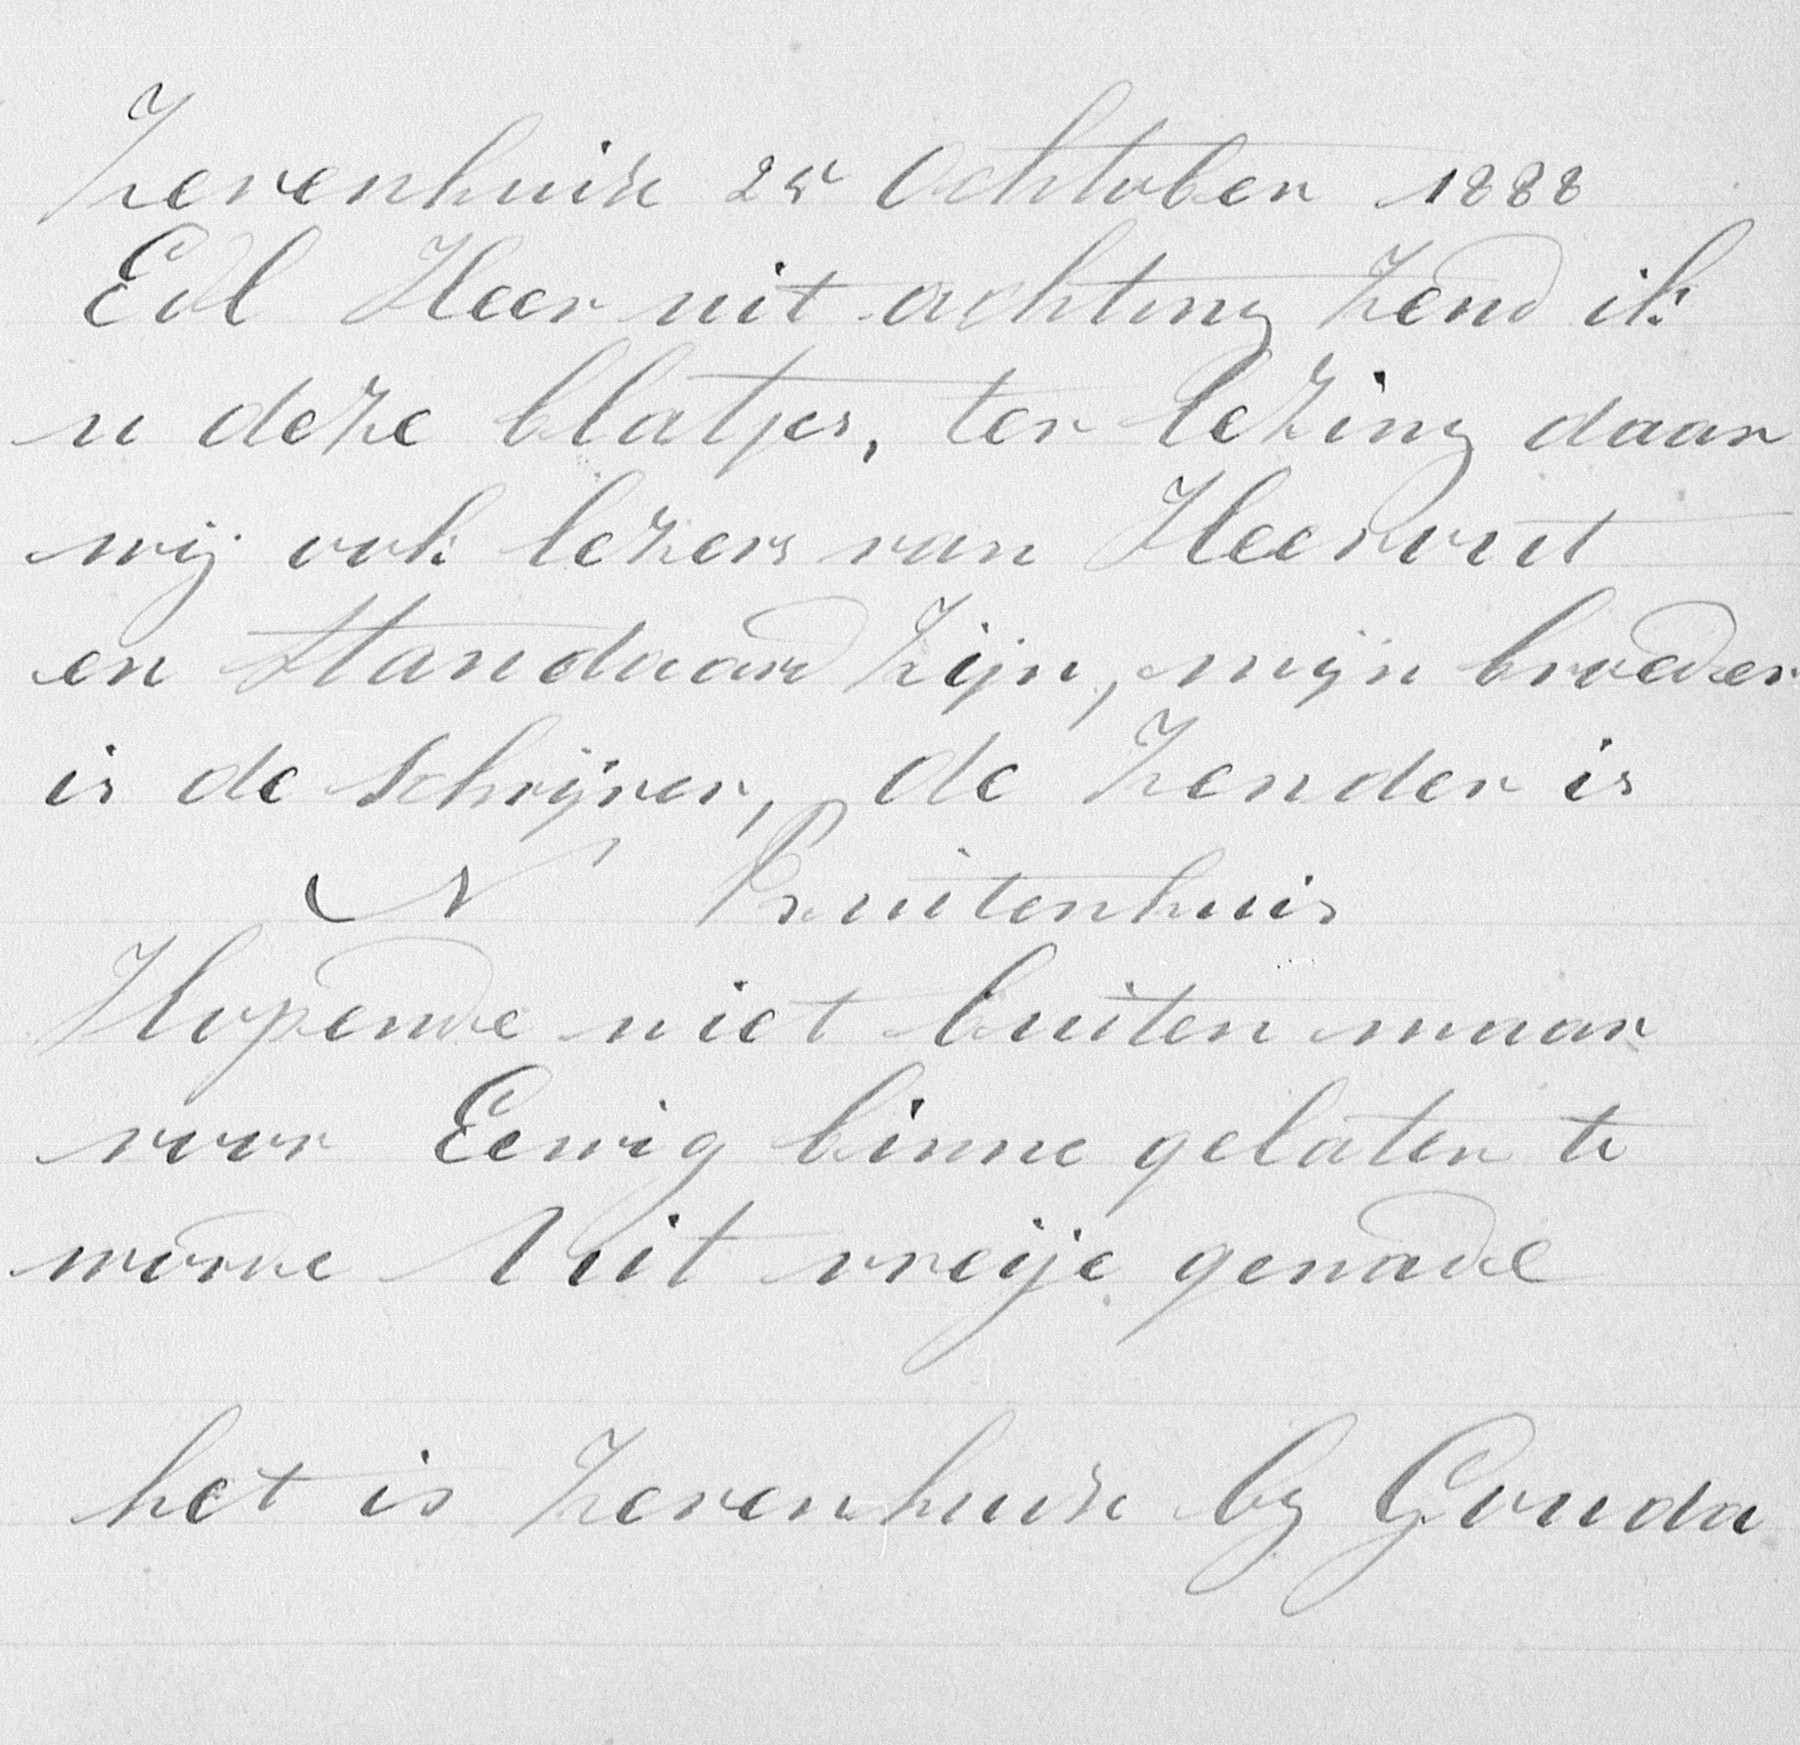 Zevenhuize 25 Ochtober 1888
Edl Heer uit achting zend ik
u deze blatjes, ter lezing daar
wij ook lezers van Heerout
en Standaard zijn, mijn broeder
is de schrijver, de zender is
N Buitenhuis
Hopende niet buiten maar
voor Eewig binne gelaten te
worde Uit vreije genade
het is Zevenhuize by Gouda